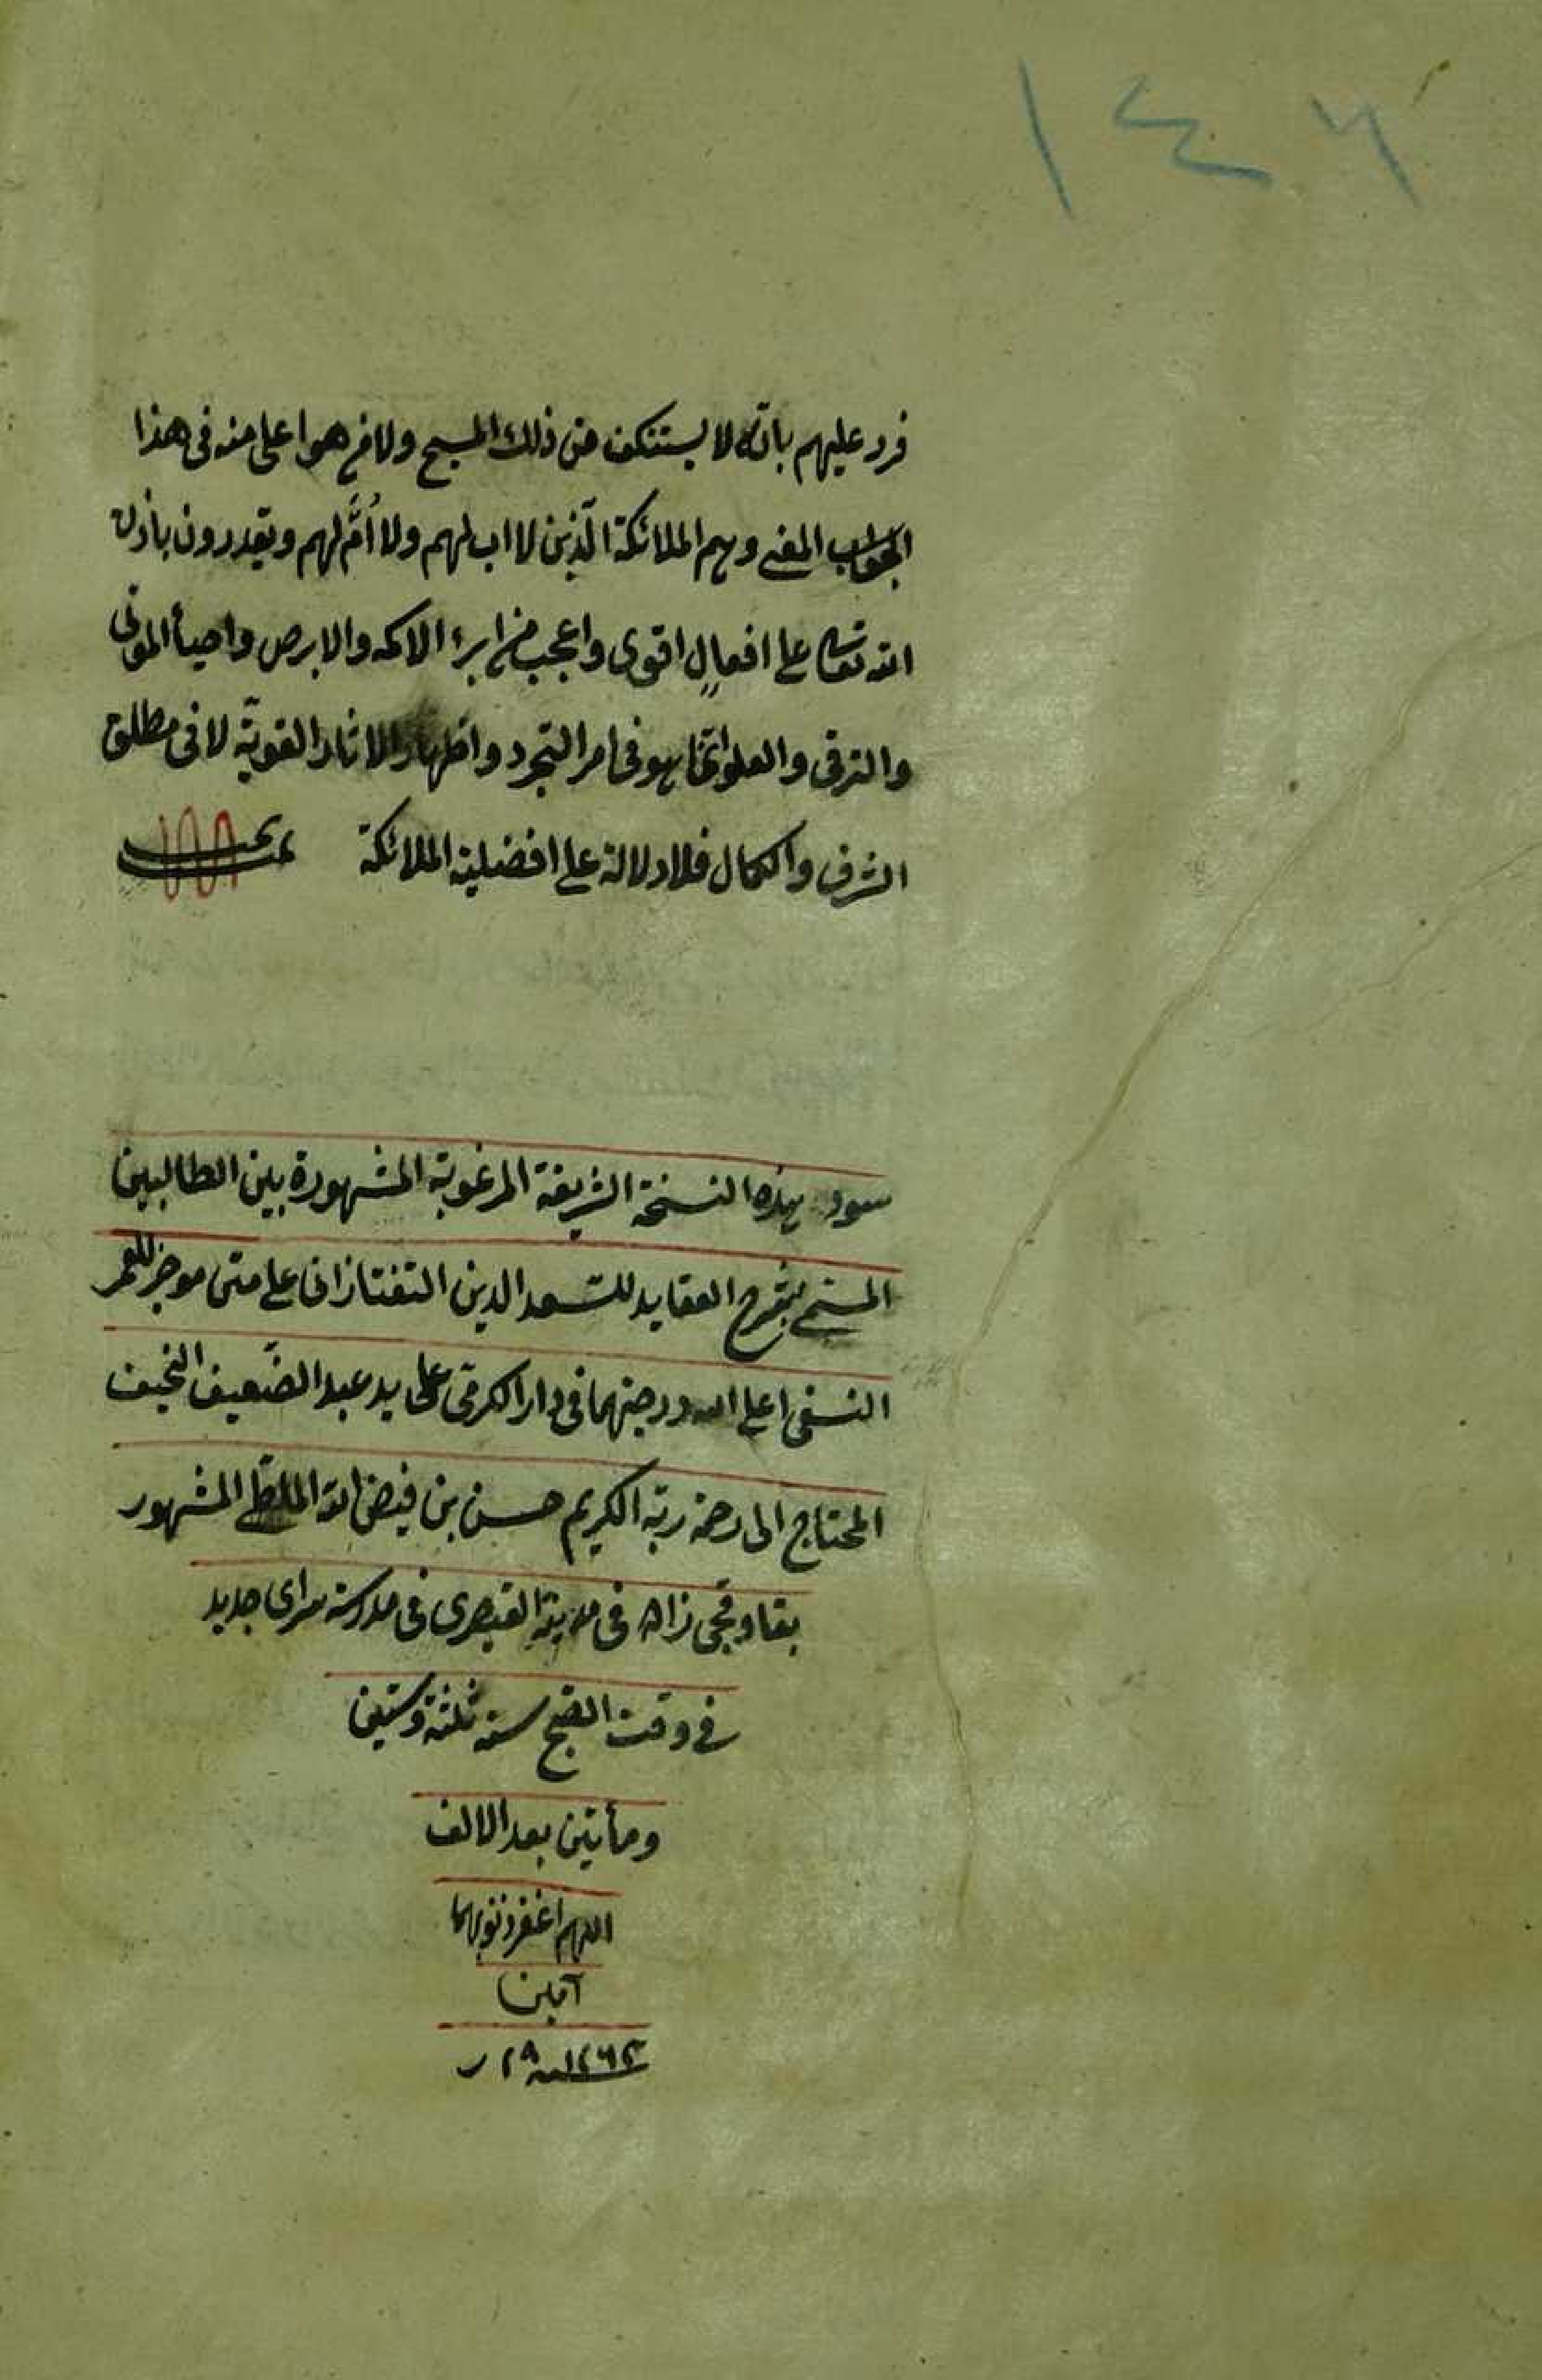 ١٤٦
فرد عليهم بانه لا يستنكف من ذلك المسيح ولا من هو اعلى منه فى هذا
المعنى وهم الملائكة الذين لا اب لهم ولا اُمَّ لهم ويقدرون باذن
الله تعالى على افعالٍ اقوى واعجب من ابرء الاكمه والابرص واحياء الموتى
والترقى والعلو انما هو فى امر التجرد واظهار الاثار القويّة لا فى مطلق
الشرف والكمال فلا دلالة على افضلية الملائكة
سود هذه النسخة الشريفة المرغوبة المشهورة بين الطالبين
المسمى بشرح العقايد للسعد الدين التفتازانى على متن موجز للعمر
النسفى اعلى الله درجتهما فى دار الكرمى على يد عبد الضّعيف النحيف
المحتاج الى رحمة ربّه الكريم حسن بن فيض الله المشهور
زاده فى مدينة القيصرى فى مدرسة سراى جديد
فى وقت الصبح سنه ثلثة وستين
ومأتين بعد الالف
اللهم اغفر ذنوبهما
آمين
١٢٦٣